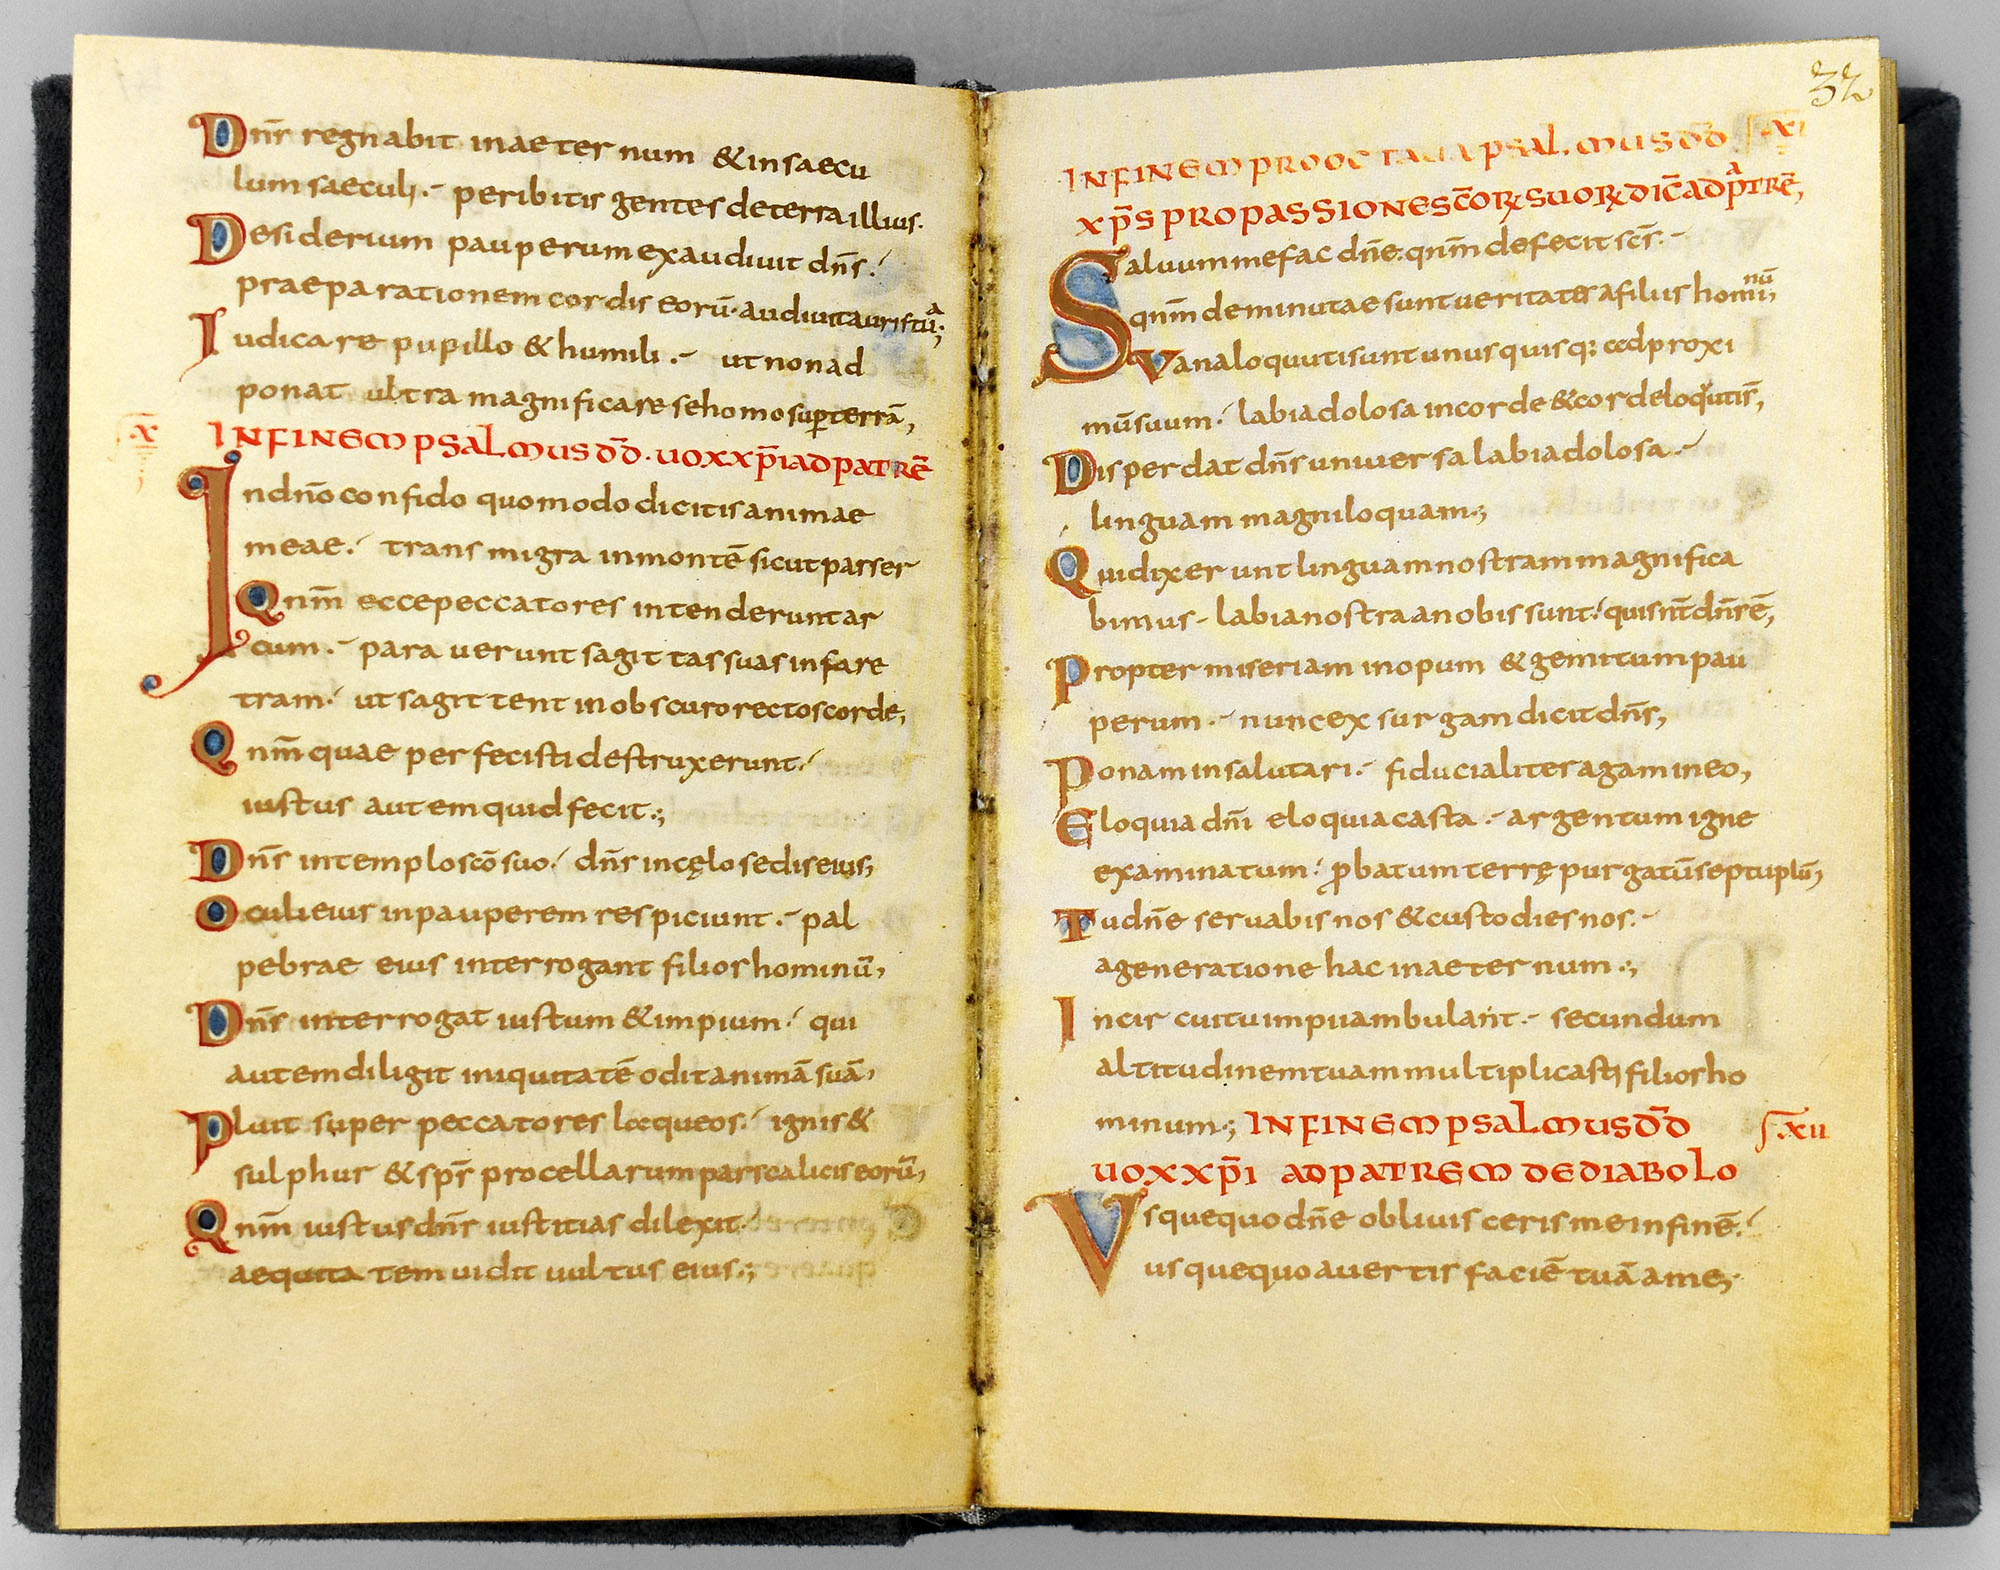 Dn̄s regnabit inaeternum &insaecu
lum saeculi.- peribitis gentes deterra illius.
Desiderium pauperum exaudiuit dn̄s.
praeparationem cordis eorū. audiuit auris tuā;
Iudicare pupillo & humili.- ut non ad
ponat ultra magnificare se homo super terrā,
.x̄ INFINEM PSALMUS D̄D. UOX XP̄I AD PATRĒ
Indn̄o confido quomodo dicitis animae
meae. transmigra in montē sicut passer
Qnm̄ ecce peccatores intenderunt ar
cum.- parauerunt sagittas suas in fare
tram. ut sagittent in obscuro rectos corde,
Qnm̄ quae perfecisti destruxerunt.
iustus autem quid fecit.;
Dn̄s in templo sc̄o suo. dn̄s in cęlo sedis eius,
Oculi eius in pauperem respiciunt.- pal
pebrae eius interrogant filios hominū,
Dn̄s interrogat iustum & impium. qui
autem diligit iniquitatē odit animā suā,
Pluit super peccatores laqueos. ignis &
sulphur & sp̄s procellarum pars calicis eorū,
Qnm̄ iustus dn̄s iustitias dilexit.
aequitatem uidit uultus eius.;
32
INFINEM PRO OCTAUA PSALMUS D̄D x̄i
XP̄S PRO PASSIONE SC̄ORꝜ SUORꝜ DIC̄ AD PATRĒ,
Saluum me fac dn̄e. qnm̄ defecit sc̄s.-
qnm̄ deminutae sunt ueritates a filiis hominū,
Vana loquuti sunt unusquisq; ad proxi
mū suum. labia dolosa in corde & corde loquuti s̄,
Disperdat dn̄s uniuersa labia dolosa.-
linguam magniloquam.;
Qui dixerunt linguam nostram magnifica
bimus- labia nostra a nobis sunt. quis n̄t dn̄s ē,
Propter miseriam inopum & gemitum pau
perum.- nunc exsurgam dicit dn̄s,
Ponam in salutari.- fiducialiter agam in eo,
Eloquia dn̄i eloquia casta.- argentum igne
examinatum. ꝓbatum terrę purgatū septuplū,
Tu dn̄e seruabis nos & custodies nos.-
a generatione hac in aeternum.;
Incir cuitu impii ambulant.- secundum
altitudinem tuam multiplicasti filios ho
minum.; INFINEM PSALMUS D̄D x̄ii
UOX XP̄I AD PATREM DE DIABOLO
Vsquequo dn̄e obliuisceris me in finē.
usquequo auertis faciē tuā a me,